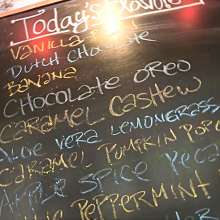 Today's
VANILLA
DUTCH CHOCOLATE
BANANA
CHOCOLATE OREO
CARAMEL CASHEW
ALOE VERA LEMONGRASS
CARAMEL PUMPKIN
SPICE PECA
PEPPERMINT